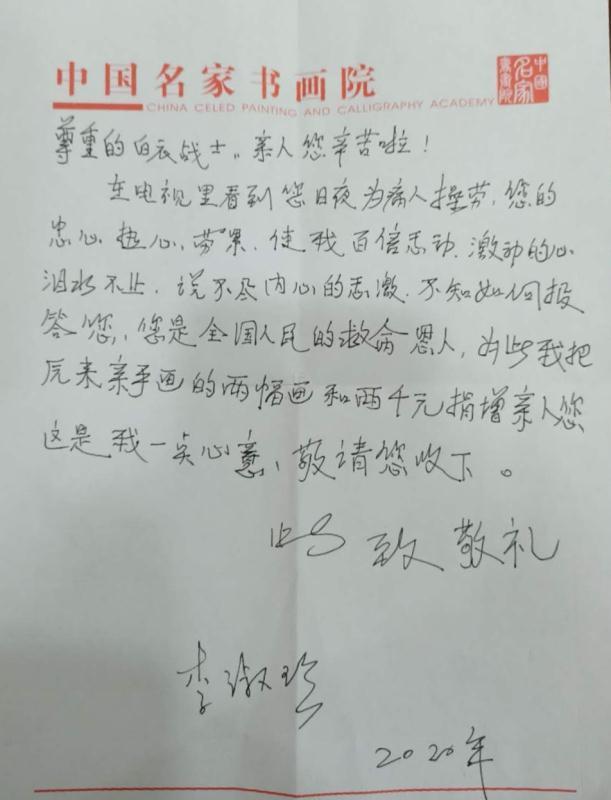 中国名家书画院
中國
名家
書畫院
CHINA CELED PAINTING AND CALLIGRAPHY ACADEMY
尊重的白衣战士。亲人您辛苦啦！
在电视里看到您日夜为病人操劳，您的
忠心，热心，劳累，使我百倍感动，激动的心
泪水不止，说不尽内心的感激，不知如何报
答您，您是全国人民的救命恩人，为此我把
原来亲手画的两幅画和两千元捐增亲人您
这是我一点心意，敬请您收下。
此致敬礼
李淑珍
2020年